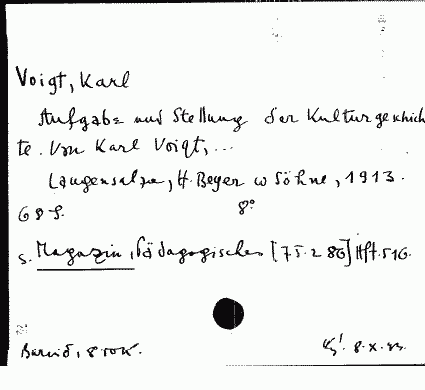 Voigt, Karl
Aufgabe und Stellung der Kulturgeschich
te. Von Karl Voigt, ...
Langensalza, H. Beyer u Söhne, 1913.
68 S. 8°
s. Magazin, Pädagogisches [75.286] Hft. 516.
8. X.